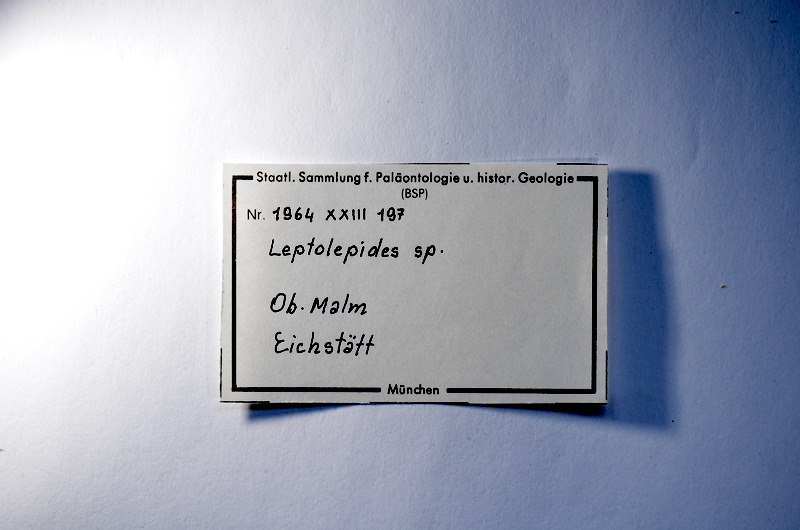 Staatl. Sammlung f. Paläontologie u. histor. Geologie
(BSP)
Nr. 1964 XXIII 197
Leptolepides sp.
Ob. Malm
Eichstätt
München